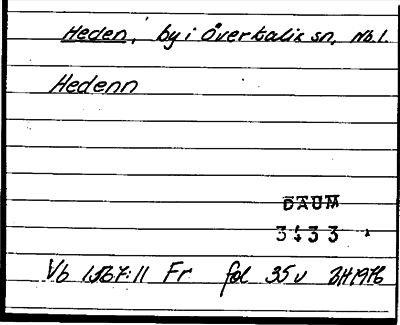 Heden, by i Överkalix sn, Nb.l.
Hedenn
DAUM
3433
Vb 1567:11 Fr fol 35 v BH 1976